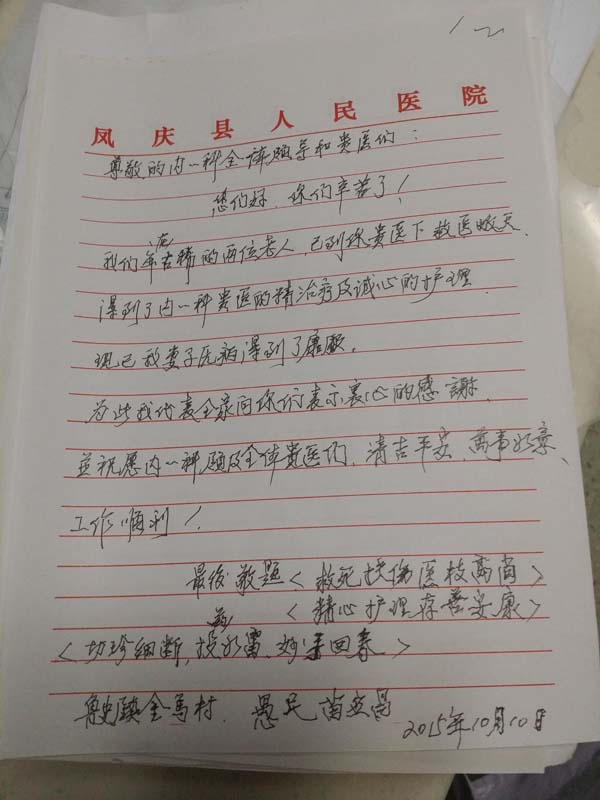 凤庆县人民医院
尊敬的内一科全体领导和贵医们：
您们好、你们辛苦了！
我们年古稀的两位老人、已到你贵医下数医数天、
得到了内一种贵医的精治疗及诚心的护理、
现已我妻子氏病得到了康愈。
为些我代表全家向你们表示衷心的感謝、
并祝愿内一科及全体贵医们、清吉平安、万事如意、
工作顺利！
最後敬题＜救死扶伤医技高尚＞
＜精心护理存善安康＞
＜切珍细断，投、妙手回春＞
鲁史镇金马村、愚民
2015年10月10日